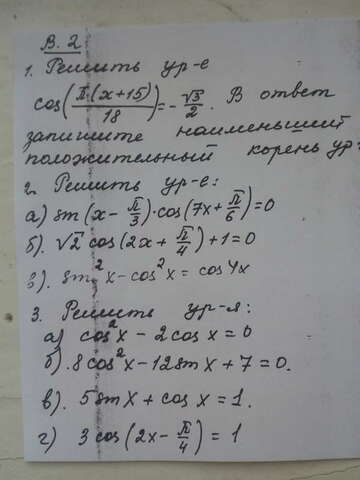 В. 2
1. Решить ур-е
cos(π(x+15)/18) = -√3/2. В ответ
запишите наименьший
положительный корень ур-
2. Решить ур-е:
а) sin(x - π/3)·cos(7x + π/6) = 0
б). √2 cos(2x + π/4) + 1 = 0
в). sin²x - cos²x = cos4x
3. Решить ур-я:
а) cos²x - 2cos x = 0
б). 8cos²x - 12sin x + 7 = 0.
в). 5sin x + cos x = 1.
г) 3cos(2x - π/4) = 1